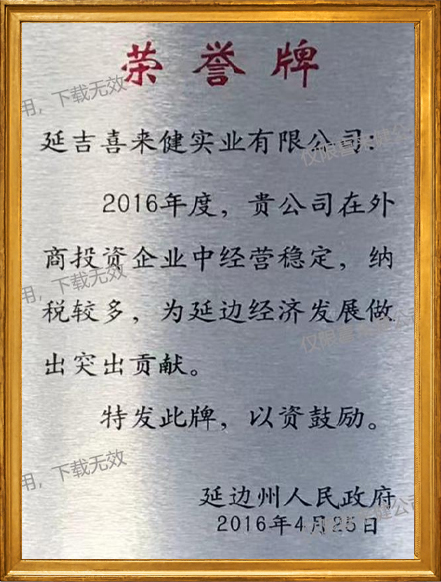 荣誉牌
延吉喜来健实业有限公司：
2016年度，贵公司在外
商投资企业中经营稳定，纳
税较多，为延边经济发展做
出突出贡献。
特发此牌，以资鼓励。
延边州人民政府
2016年4月25日
用，下载无效
用，下载无效
用，下载无效